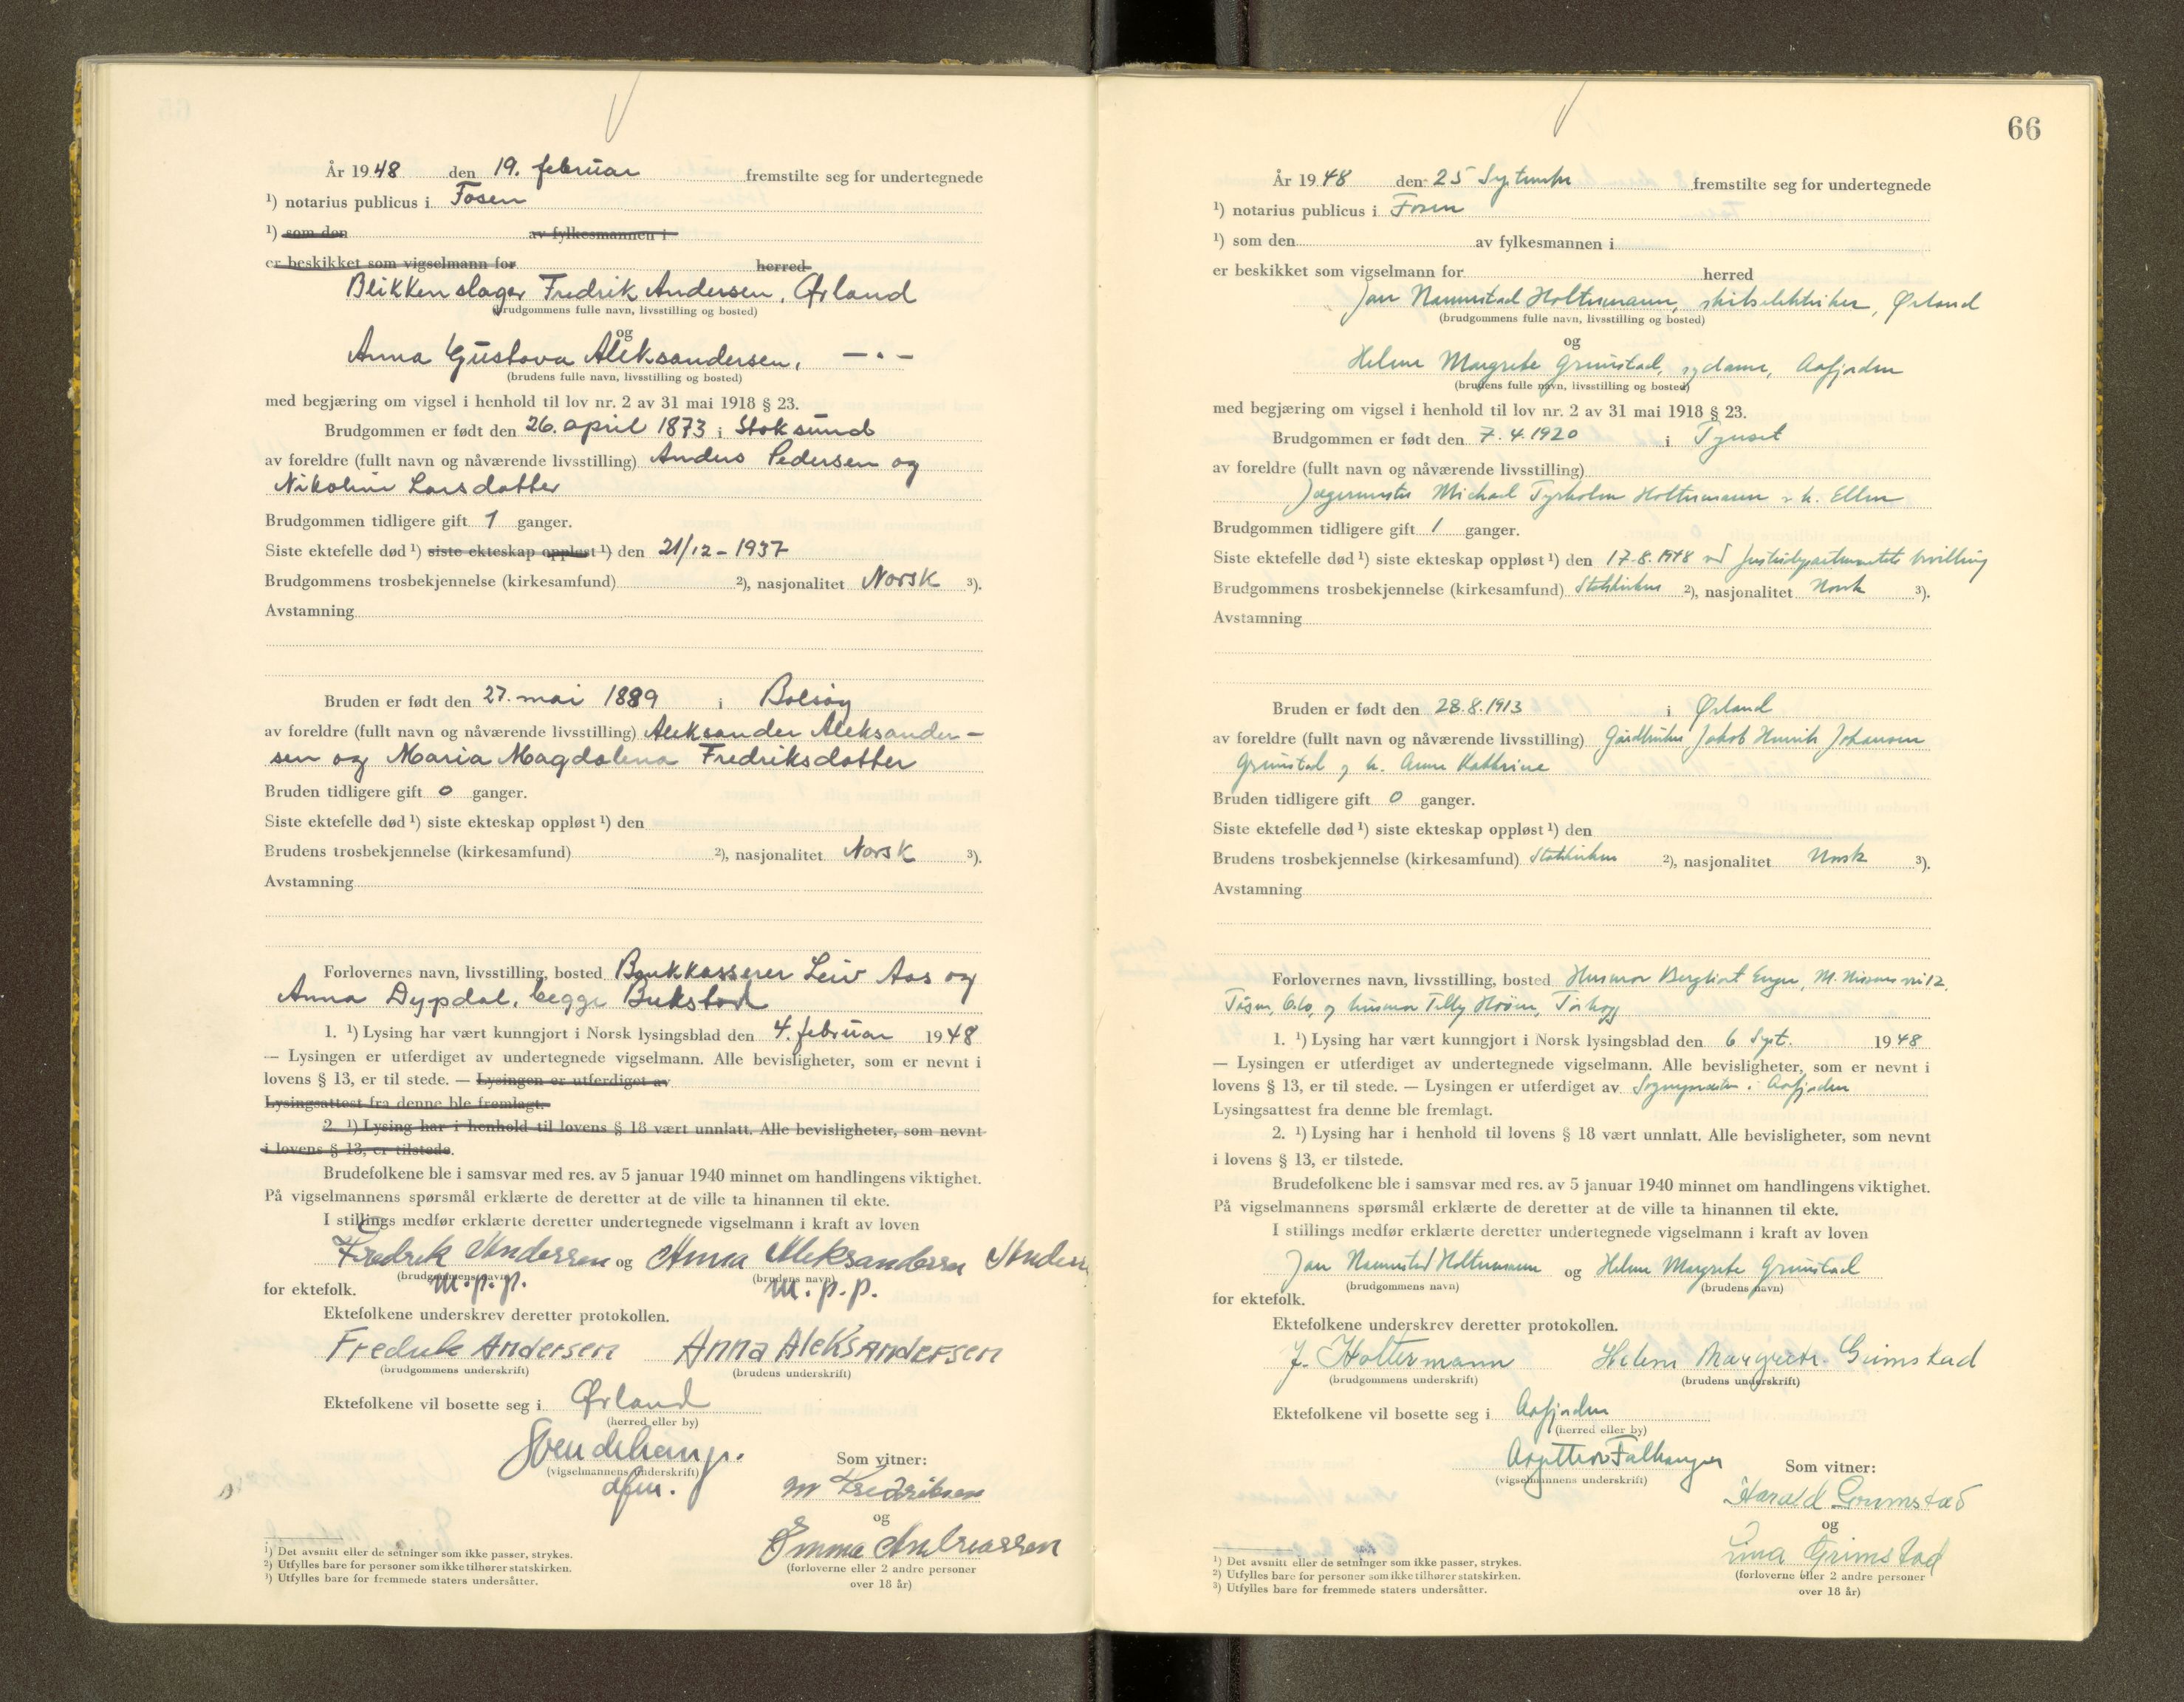 År 1948 den 19. februar fremstilte seg for undertegnede
¹) notarius publicus i Fosen
¹) som den av fylkesmannen i
er beskikket som vigselmann for herred
Blikkenslager Fredrik Andersen, Ørland
(brudgommens fulle navn, livsstilling og bosted)
og
Anna Gustava Aleksandersen, —"—
(brudens fulle navn, livsstilling og bosted)
med begjæring om vigsel i henhold til lov nr. 2 av 31 mai 1918 § 23.
Brudgommen er født den 26. april 1873 i Stoksund
av foreldre (fullt navn og nåværende livsstilling) Anders Pedersen og
Nikoline Larsdatter
Brudgommen tidligere gift 1 ganger.
Siste ektefelle død ¹) siste ekteskap oppløst ¹) den 21/12 - 1937
Brudgommens trosbekjennelse (kirkesamfund) ²), nasjonalitet Norsk ³).
Avstamning
Bruden er født den 27. mai 1889 i Bolsøy
av foreldre (fullt navn og nåværende livsstilling) Aleksander Aleksander-
sen og Maria Magdalena Fredriksdatter
Bruden tidligere gift 0 ganger.
Siste ektefelle død ¹) siste ekteskap oppløst ¹) den
Brudens trosbekjennelse (kirkesamfund) ²), nasjonalitet Norsk ³).
Avstamning
Forlovernes navn, livsstilling, bosted Bankkasserer Leiv Aas og
Anna Dypdal, begge Bukstad
1. ¹) Lysing har vært kunngjort i Norsk lysingsblad den 4. februar 1948
— Lysingen er utferdiget av undertegnede vigselmann. Alle bevisligheter, som er nevnt i
lovens § 13, er til stede. — Lysingen er utferdiget av
Lysingsattest fra denne ble fremlagt.
2. ¹) Lysing har i henhold til lovens § 18 vært unnlatt. Alle bevisligheter, som nevnt
i lovens § 13, er tilstede.
Brudefolkene ble i samsvar med res. av 5 januar 1940 minnet om handlingens viktighet.
På vigselmannens spørsmål erklærte de deretter at de ville ta hinannen til ekte.
I stillings medfør erklærte deretter undertegnede vigselmann i kraft av loven
Fredrik Andersen og Anna Aleksandersen Anders
(brudgommens navn) (brudens navn)
m.p.p. m.p.p.
for ektefolk.
Ektefolkene underskrev deretter protokollen.
Fredrik Andersen Anna Aleksandersen
(brudgommens underskrift) (brudens underskrift)
Ektefolkene vil bosette seg i Ørland
(herred eller by)
(vigselmannens underskrift)
dfm.
Som vitner:
M Fredriksen
og
Emma Andreassen
(forloverne eller 2 andre personer
over 18 år)
¹) Det avsnitt eller de setninger som ikke passer, strykes.
²) Utfylles bare for personer som ikke tilhører statskirken.
³) Utfylles bare for fremmede staters undersåtter.
66
År 1948 den 25 September fremstilte seg for undertegnede
¹) notarius publicus i Fosen
¹) som den av fylkesmannen i
er beskikket som vigselmann for herred
Jan Naumstad Holtermann, skibselektriker, Ørland
(brudgommens fulle navn, livsstilling og bosted)
og
Helene Margrete Grimstad, sydame, Aafjorden
(brudens fulle navn, livsstilling og bosted)
med begjæring om vigsel i henhold til lov nr. 2 av 31 mai 1918 § 23.
Brudgommen er født den 7.4.1920 i Tynset
av foreldre (fullt navn og nåværende livsstilling)
Jægermester Michael Tyrholm Holtermann o h. Ellen
Brudgommen tidligere gift 1 ganger.
Siste ektefelle død ¹) siste ekteskap oppløst ¹) den 17.8.1948 ved Justisdepartementets bevilling
Brudgommens trosbekjennelse (kirkesamfund) Statskirken ²), nasjonalitet Norsk ³).
Avstamning
Bruden er født den 28.8.1913 i Ørland
av foreldre (fullt navn og nåværende livsstilling) Gårdbruker Jakob Henrik Johansen
Grimstad og h. Anne Kathrine
Bruden tidligere gift 0 ganger.
Siste ektefelle død ¹) siste ekteskap oppløst ¹) den
Brudens trosbekjennelse (kirkesamfund) Statskirken ²), nasjonalitet Norsk ³).
Avstamning
Forlovernes navn, livsstilling, bosted Husmor Bergliot Enger, M. Nissens vei 12,
Tåsen, Oslo, og husmor Tilly
1. ¹) Lysing har vært kunngjort i Norsk lysingsblad den 6 Sept. 1948
— Lysingen er utferdiget av undertegnede vigselmann. Alle bevisligheter, som er nevnt i
lovens § 13, er til stede. — Lysingen er utferdiget av Sognepresten i Aafjorden
Lysingsattest fra denne ble fremlagt.
2. ¹) Lysing har i henhold til lovens § 18 vært unnlatt. Alle bevisligheter, som nevnt
i lovens § 13, er tilstede.
Brudefolkene ble i samsvar med res. av 5 januar 1940 minnet om handlingens viktighet.
På vigselmannens spørsmål erklærte de deretter at de ville ta hinannen til ekte.
I stillings medfør erklærte deretter undertegnede vigselmann i kraft av loven
Jan Naumstad Holtermann og Helene Margrete Grimstad
(brudgommens navn) (brudens navn)
for ektefolk.
Ektefolkene underskrev deretter protokollen.
J. Holtermann Helene Margrete Grimstad
(brudgommens underskrift) (brudens underskrift)
Ektefolkene vil bosette seg i Aafjorden
(herred eller by)
Falkanger
(vigselmannens underskrift)
Som vitner:
Harald Grimstad
og
Lina Grimstad
(forloverne eller 2 andre personer
over 18 år)
¹) Det avsnitt eller de setninger som ikke passer, strykes.
²) Utfylles bare for personer som ikke tilhører statskirken.
³) Utfylles bare for fremmede staters undersåtter.